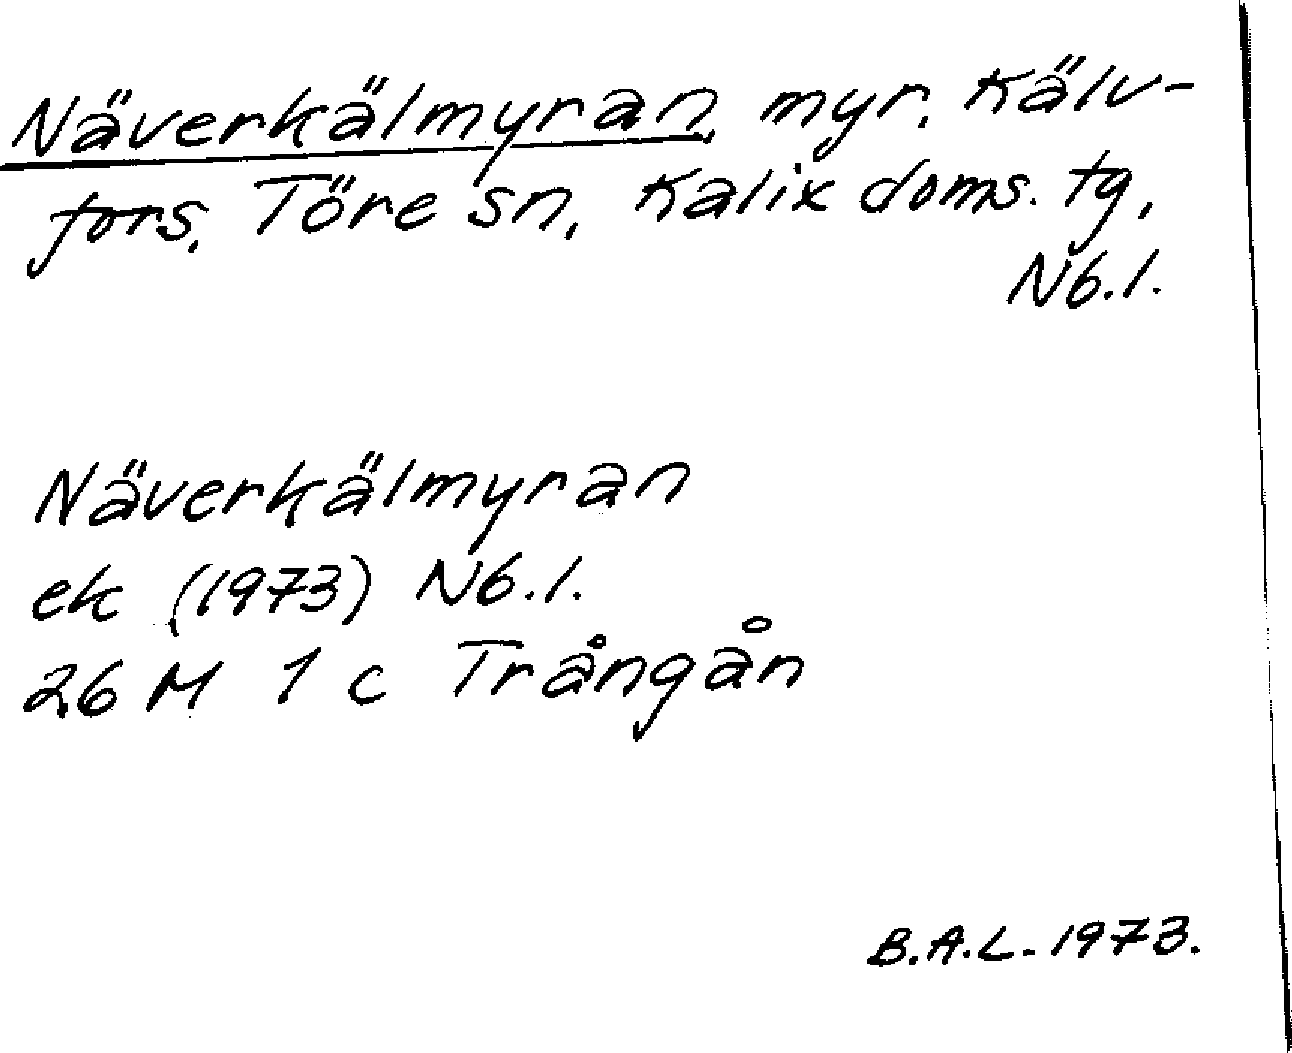 Näverkälmyran, myr, Kälv-
fors, Töre sn, Kalix doms. tg,
Nb.l.
Näverkälmyran
ek (1973) Nb.l.
26 M 1 c Trångån
B.A.L. 1973.